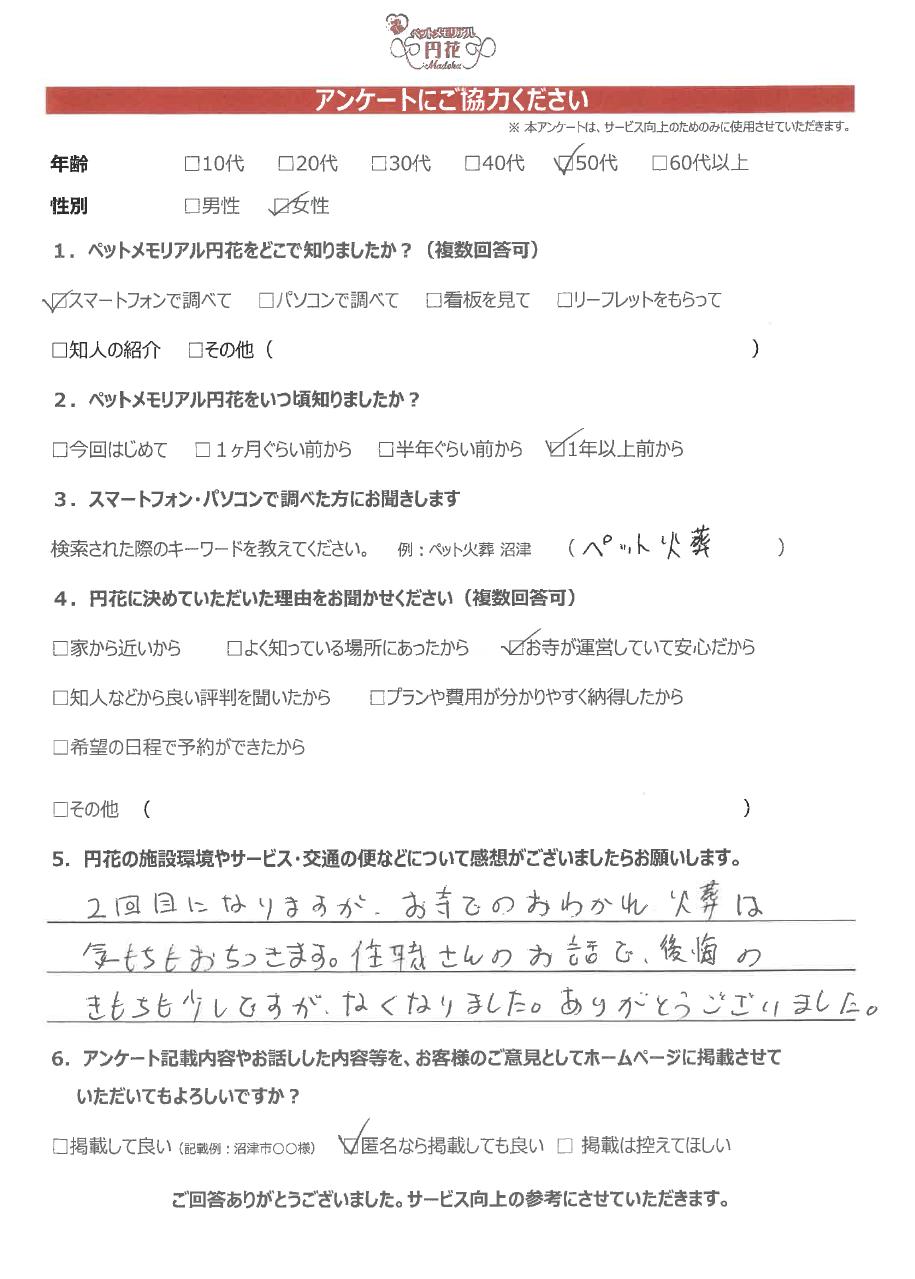 ペットメモリアル
円花
Madoka
アンケートにご協力ください
※ 本アンケートは、サービス向上のためのみに使用させていただきます。
年齢 □10代 □20代 □30代 □40代 ☑50代 □60代以上
性別 □男性 ☑女性
１．ペットメモリアル円花をどこで知りましたか？（複数回答可）
☑スマートフォンで調べて □パソコンで調べて □看板を見て □リーフレットをもらって
□知人の紹介 □その他（ ）
２．ペットメモリアル円花をいつ頃知りましたか？
□今回はじめて □１ヶ月ぐらい前から □半年ぐらい前から ☑1年以上前から
３．スマートフォン・パソコンで調べた方にお聞きします
検索された際のキーワードを教えてください。 例：ペット火葬 沼津 （ペット火葬 ）
４．円花に決めていただいた理由をお聞かせください（複数回答可）
□家から近いから □よく知っている場所にあったから ☑お寺が運営していて安心だから
□知人などから良い評判を聞いたから □プランや費用が分かりやすく納得したから
□希望の日程で予約ができたから
□その他 （ ）
5．円花の施設環境やサービス・交通の便などについて感想がございましたらお願いします。
2回目になりますが、お寺でのおわかれ 火葬は
気もちもおちつきます。住職さんのお話で、後悔の
きもちも少しですが、なくなりました。ありがとうございました。
6．アンケート記載内容やお話しした内容等を、お客様のご意見としてホームページに掲載させて
いただいてもよろしいですか？
□掲載して良い（記載例：沼津市〇〇様） ☑匿名なら掲載しても良い □ 掲載は控えてほしい
ご回答ありがとうございました。サービス向上の参考にさせていただきます。